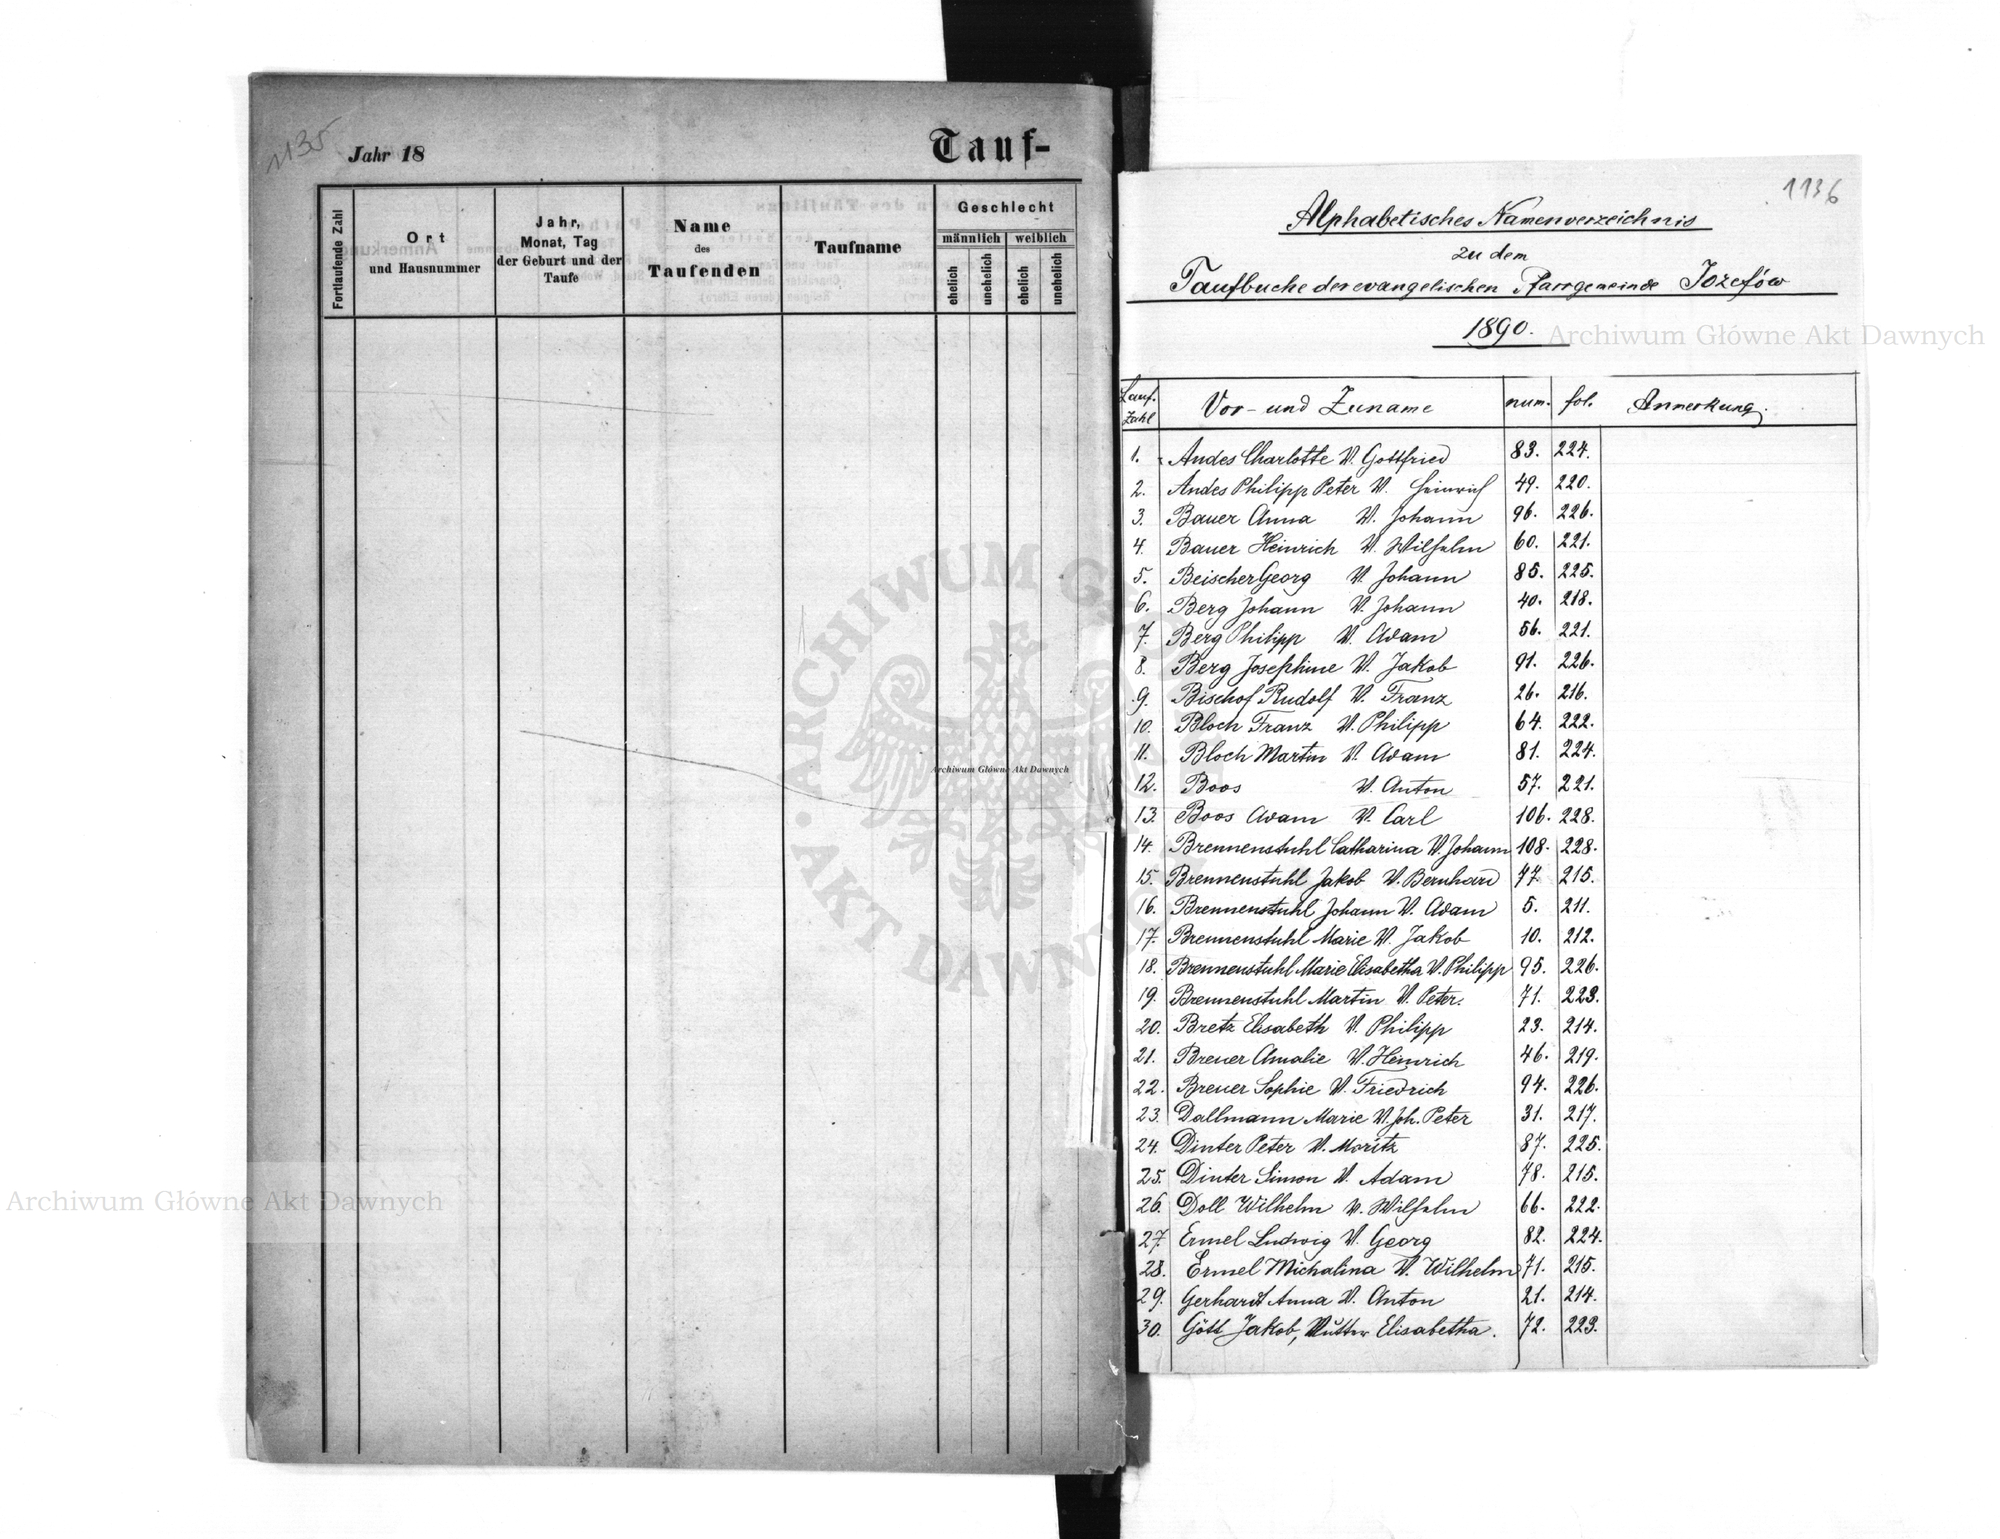 1135
Jahr 18
Tauf-
Fortlaufende Zahl
Ort
und Hausnummer
Jahr,
Monat, Tag
der Geburt und der
Taufe
Name
des
Taufenden
Taufname
Geschlecht
männlich weiblich
ehelich unehelich ehelich unehelich
1136
Alphabetisches Namenverzeichnis
zu dem
Taufbuche der evangelischen Pfarrgemeinde Józefów
1890.
Lauf. Zahl Vor- und Zuname num. fol. Anmerkung.
1. Andes Charlotte V. Gottfried 83. 224.
2. Andes Philipp Peter V. Heinrich 49. 220.
3. Bauer Anna V. Johann 96. 226.
4. Bauer Heinrich V. Wilhelm 60. 221.
5. Beischer Georg V. Johann 85. 225.
6. Berg Johann V. Johann 40. 218.
7. Berg Philipp V. Adam 56. 221.
8. Berg Josephine V. Jakob 91. 226.
9. Bischof Rudolf V. Franz 26. 216.
10. Bloch Franz V. Philipp 64. 222.
11. Bloch Martin V. Adam 81. 224.
12. Boos V. Anton 57. 221.
13. Boos Adam V. Carl 106. 228.
14. Brennenstuhl Catharina V. Johann 108. 228.
15. Brennenstuhl Jakob V. Bernhard 77. 215.
16. Brennenstuhl Johann V. Adam 5. 211.
17. Brennenstuhl Marie V. Jakob 10. 212.
18. Brennenstuhl Marie Elisabetha V. Philipp 95. 226.
19. Brennenstuhl Martin V. Peter. 71. 223.
20. Bretz Elisabeth V. Philipp 23. 214.
21. Breuer Amalie V. Heinrich 46. 219.
22. Breuer Sophie V. Friedrich 94. 226.
23. Dallmann Marie V. Joh. Peter 31. 217.
24. Dinter Peter V. Moritz 87. 225.
25. Dinter Simon V. Adam 78. 215.
26. Doll Wilhelm V. Wilhelm 66. 222.
27. Ermel Ludwig V. Georg 82. 224.
28. Ermel Michalina V. Wilhelm 71. 215.
29. Gerhardt Anna V. Anton 21. 214.
30. Götl Jakob, Mutter Elisabetha. 72. 223.
Archiwum Główne Akt Dawnych
Archiwum Główne Akt Dawnych
Archiwum Główne Akt Dawnych